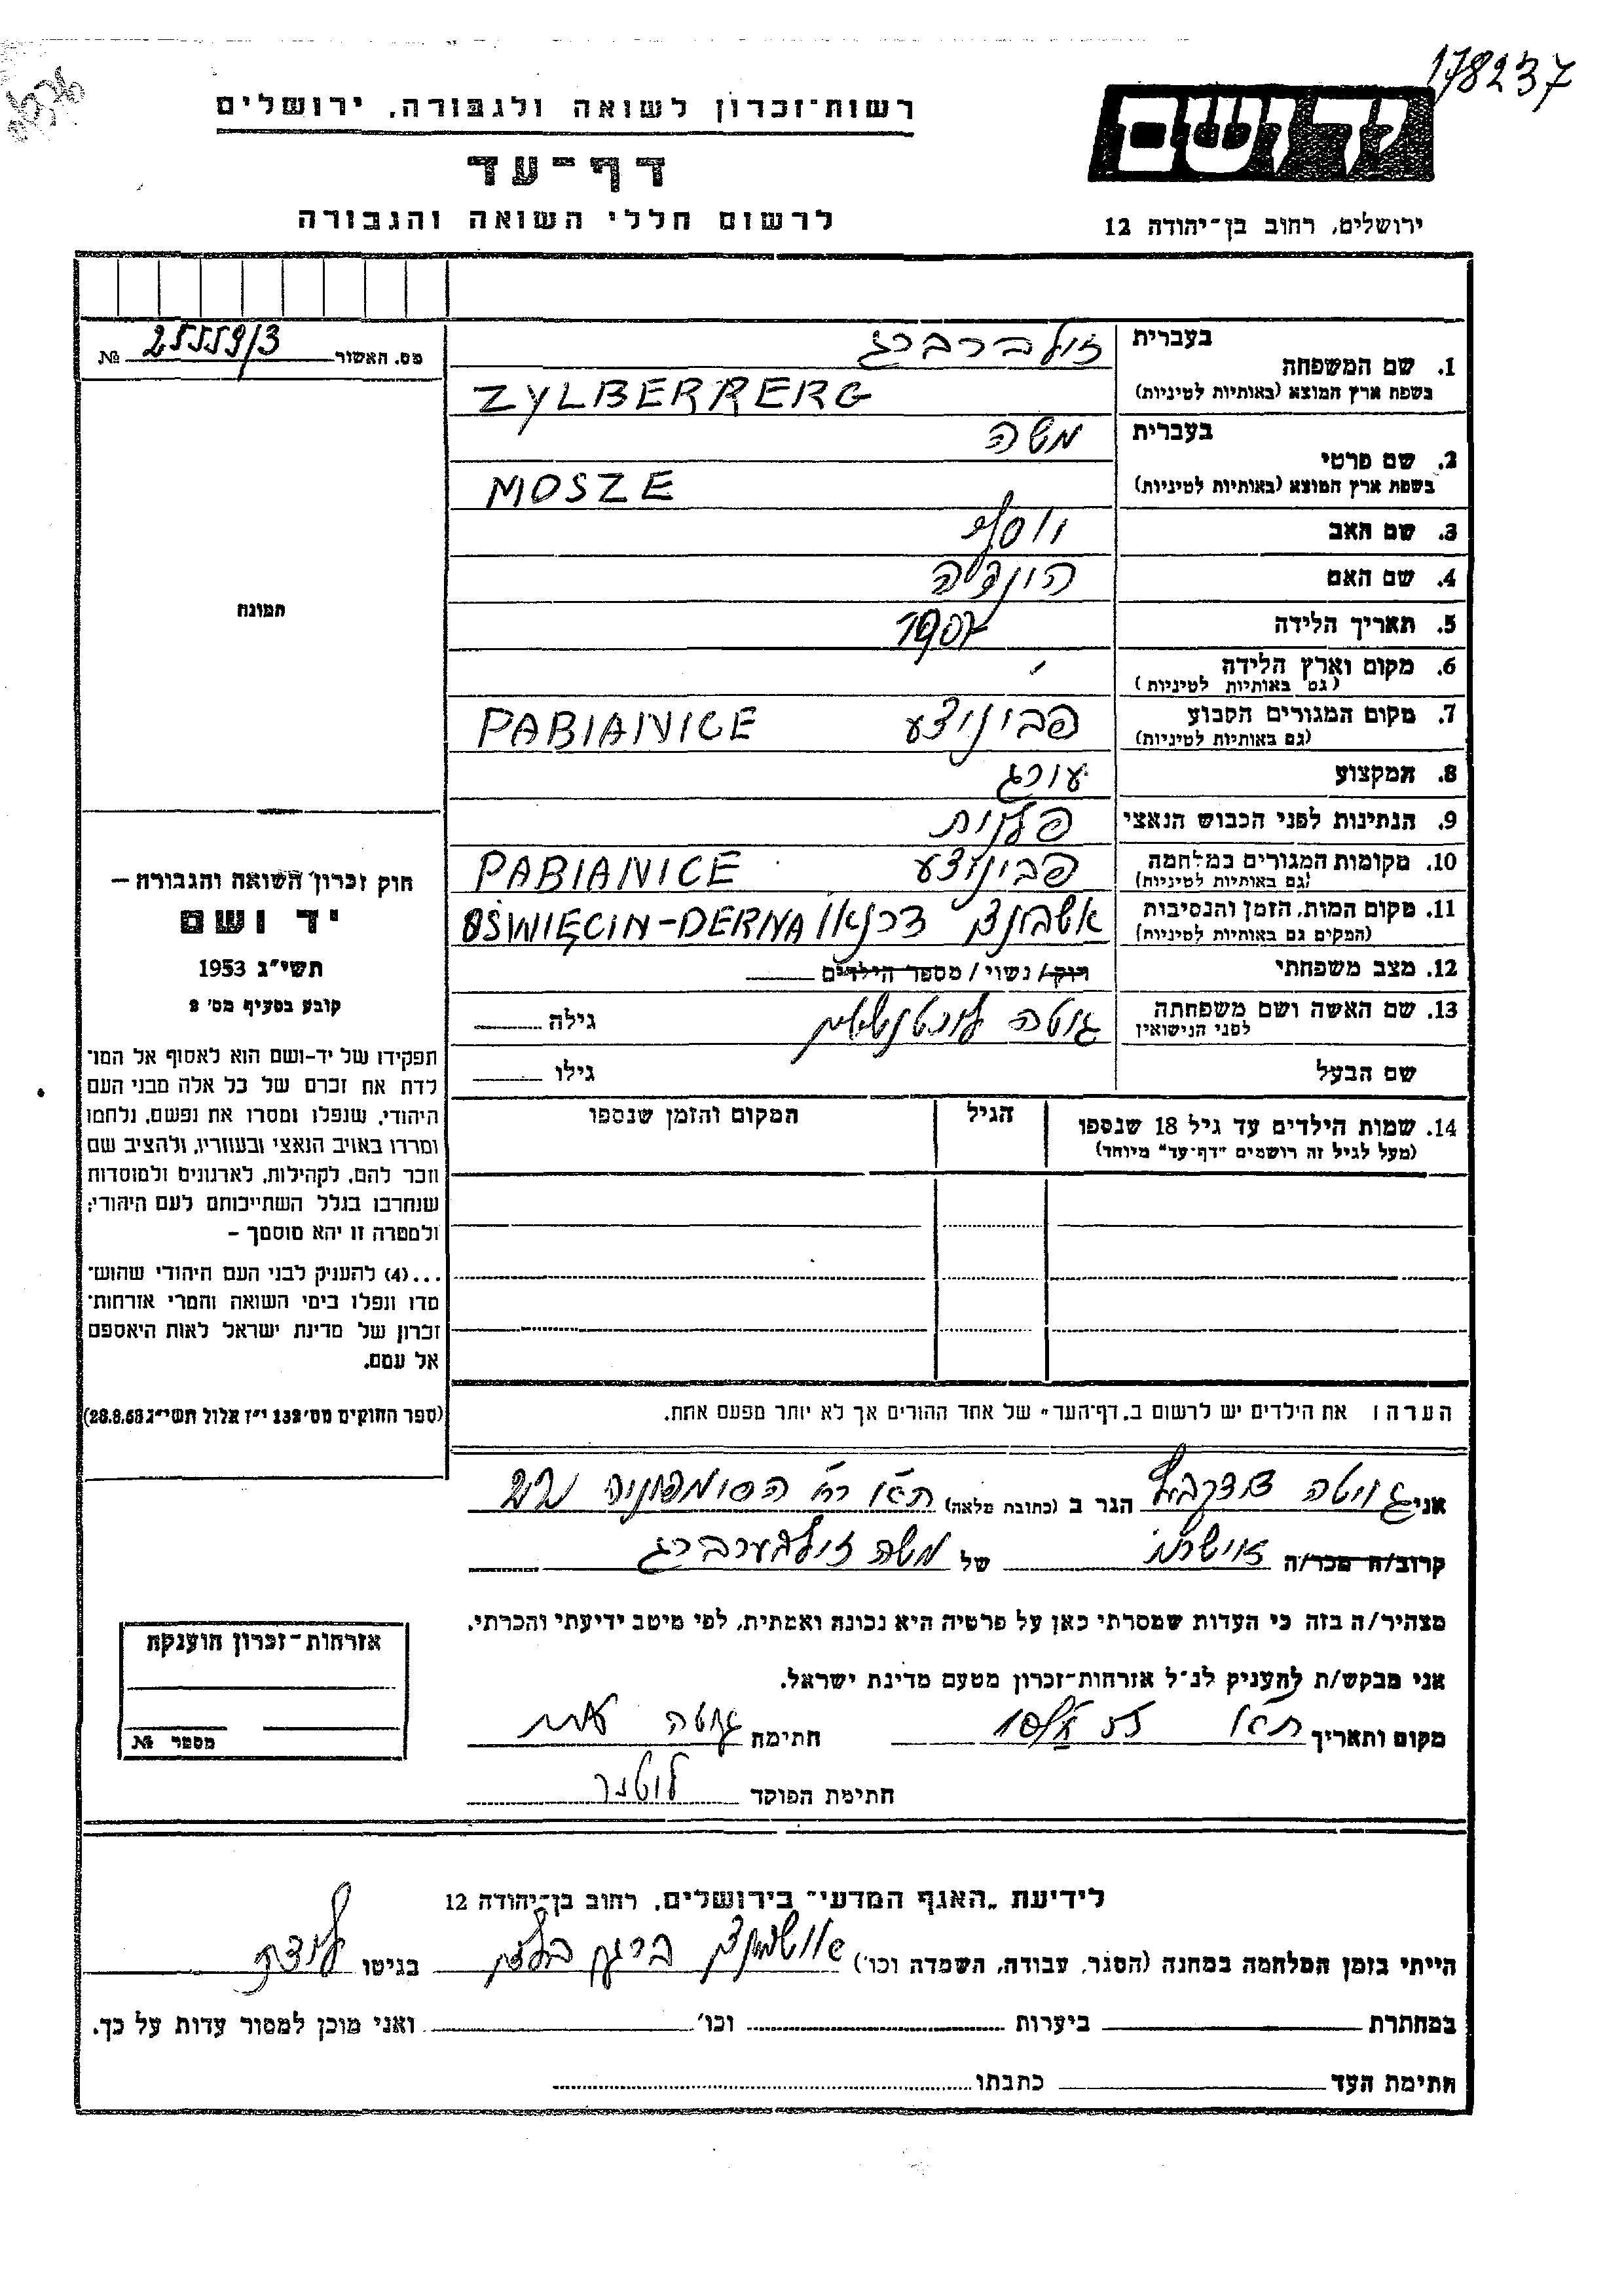 178237
רשות־זכרון לשואה ולגבורה. ירושלים
דף־עד
לרשום חללי השואה והגבורה
יד ושם
ירושלים, רחוב בן־יהודה 12
מס. האשור 25559/3 №
בעברית זילברברג
1. שם המשפחה
בשפת ארץ המוצא (באותיות לטיניות) ZYLBERRERG
בעברית משה
2. שם פרטי
בשפת ארץ המוצא (באותיות לטיניות) MOSZE
3. שם האב יוסף
4. שם האם הינדה
5. תאריך הלידה 1907
6. מקום וארץ הלידה
(גם באותיות לטיניות)
7. מקום המגורים הקבוע פביניצע PABIANICE
(גם באותיות לטיניות)
8. המקצוע אורג
9. הנתינות לפני הכבוש הנאצי פלנית
10. מקומות המגורים במלחמה פביניצע PABIANICE
(גם באותיות לטיניות)
11. מקום המות, הזמן והנסיבות דרנאו OŚWIĘCIN-DERNA
(המקום גם באותיות לטיניות)
12. מצב משפחתי רווק/ נשוי/ מספר הילדים
13. שם האשה ושם משפחתה גיטה גילה
לפני הנישואין
שם הבעל גילו
14. שמות הילדים עד גיל 18 שנספו הגיל המקום והזמן שנספו
(מעל לגיל זה רושמים "דף־עד" מיוחד)
הערה: את הילדים יש לרשום ב„דף־העד" של אחד ההורים אך לא יותר מפעם אחת.
תמונה
חוק זכרון השואה והגבורה —
יד ושם
תשי״ג 1953
קובע בסעיף מס׳ 2
תפקידו של יד-ושם הוא לאסוף אל המו־
לדת את זכרם של כל אלה מבני העם
היהודי, שנפלו ומסרו את נפשם, נלחמו
ומרדו באויב הנאצי ובעוזריו, ולהציב שם
וזכר להם, לקהילות, לארגונים ולמוסדות
שנחרבו בגלל השתייכותם לעם היהודי;
ולמטרה זו יהא מוסמך —
...(4) להעניק לבני העם היהודי שהוש־
מדו ונפלו בימי השואה והמרי אזרחות־
זכרון של מדינת ישראל לאות היאספם
אל עמם.
(ספר החוקים מס׳ 132 י״ז אלול תשי״ג 28.8.53)
אני גיטה הגר ב (כתובת מלאה) ת״א רח׳
קרוב/ה מכר/ה של משה זילבערברג
מצהיר/ה בזה כי העדות שמסרתי כאן על פרטיה היא נכונה ואמתית, לפי מיטב ידיעתי והכרתי.
אני מבקש/ת להעניק לנ״ל אזרחות־זכרון מטעם מדינת ישראל.
מקום ותאריך ת״א חתימה גיטה
חתימת הפוקד
אזרחות־זכרון הוענקה
מספר №
לידיעת „האגף המדעי״ בירושלים, רחוב בן־יהודה 12
הייתי בזמן המלחמה במחנה (הסגר, עבודה, השמדה וכו׳) ברגן בלזן בגיטו לודז׳
במחתרת ביערות וכו׳ ואני מוכן למסור עדות על כך.
חתימת העד כתבתו